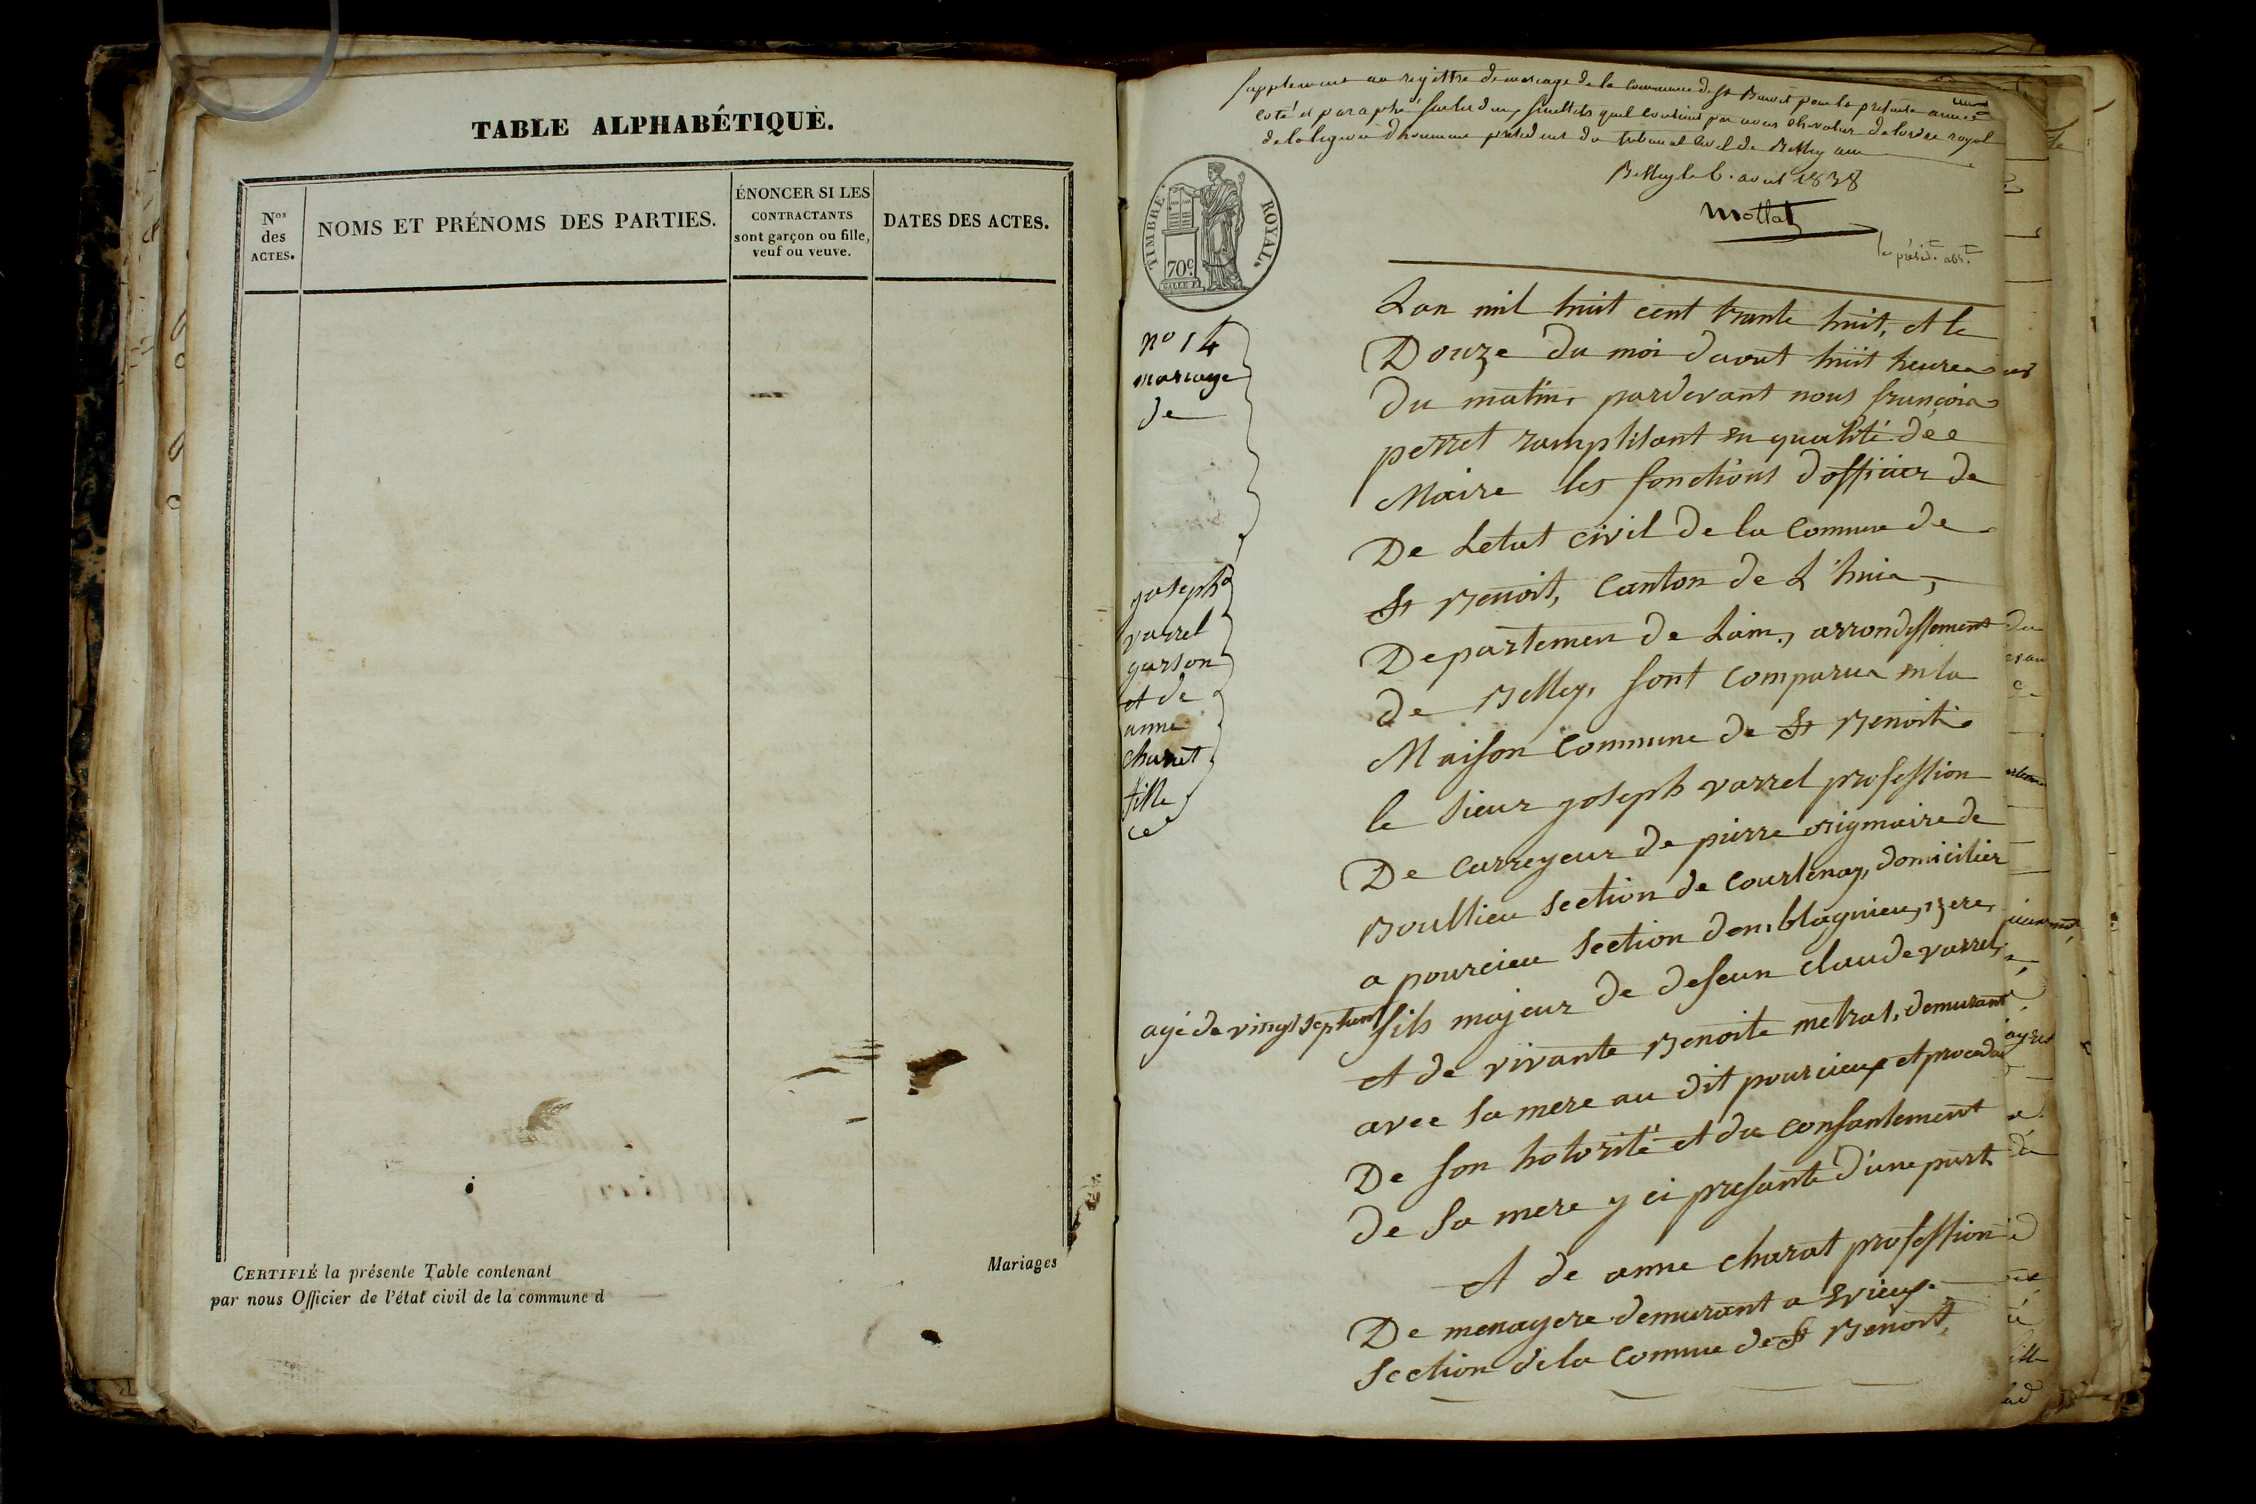 TABLE ALPHABÉTIQUE.
Nos des ACTES.
NOMS ET PRÉNOMS DES PARTIES.
ÉNONCER SI LES
CONTRACTANTS
sont garçon ou fille,
veuf ou veuve.
DATES DES ACTES.
CERTIFIÉ la présente Table contenant
Mariages
par nous Officier de l'état civil de la commune d
Supplement au registre de mariage de la commune de St Benoit pour la presente année
coté et paraphé sur les deux feuillets quil contient par nous chevalier de lordre royal
de la legion dhonneur president du tribunal civil de Belley
Belley le 6. avril 1838
Mollat
le présidt. abst.
TIMBRE ROYAL.
70c.
no 14
mariage
de
joseph
varrel
garson
et de
anne
charat
fille
Lan mil huit cent trante huit, et le
Douze du moi davout huit heures
du matin, pardevant nous françois
perret ramplisant en qualité de
Maire les fonctions dofficier de
De Letat civil de la Commune de
St Benoit, Canton de L'huis,
Departemen de Lain, arrondissement
de Belley, sont comparus en la
Maison Commune de St Benoit
le sieur joseph varrel profession
De carreyeur de pierre originaire de
Boullieu section de Courtenay, domicilier
a pourcieu section demblagnieu, izere,
agé de vingt sept ans
fils majeur de defeun claude varrel,
et de vivante Benoite metral, demurant
avec sa mere au dit pourcieux et procedan
De son hotorité et du consantement
de sa mere y ci presante d'une part
et de anne charat profession
De menagere demurant a Evieux
section de la Commue de St Benoit,